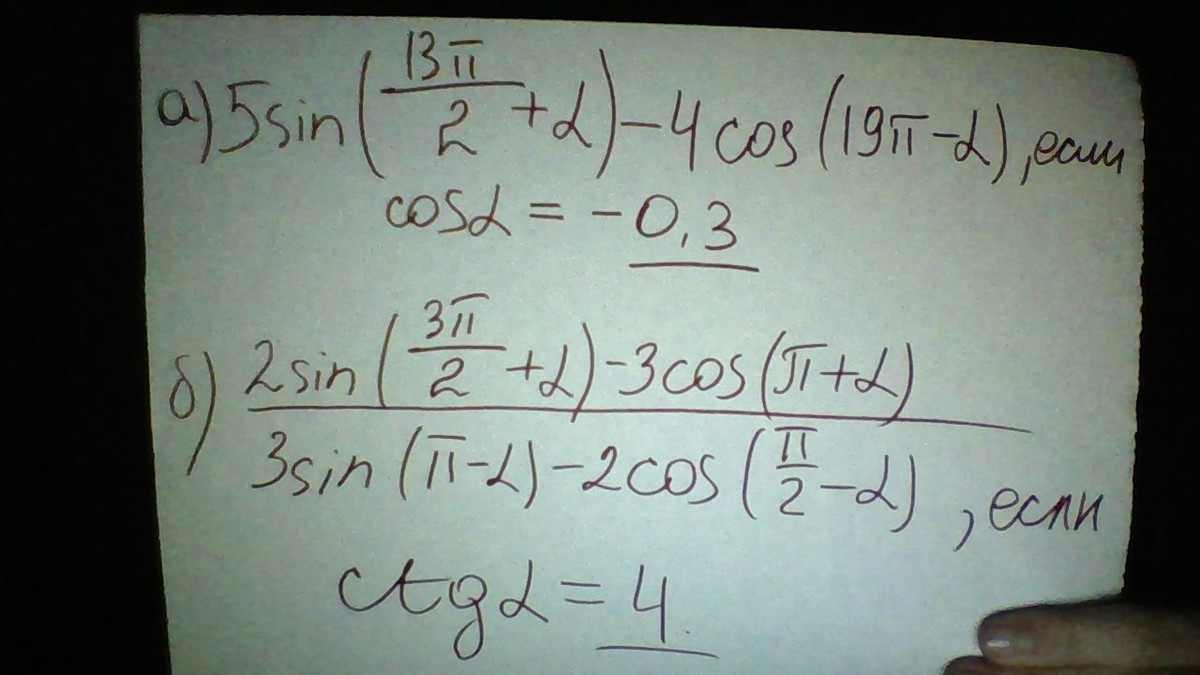 а) 5sin(13π/2 + α) - 4cos(19π - α), если
cosα = -0,3
б) 2sin(3π/2 + α) - 3cos(π + α)
3sin(π - α) - 2cos(π/2 - α), если
ctgα = 4